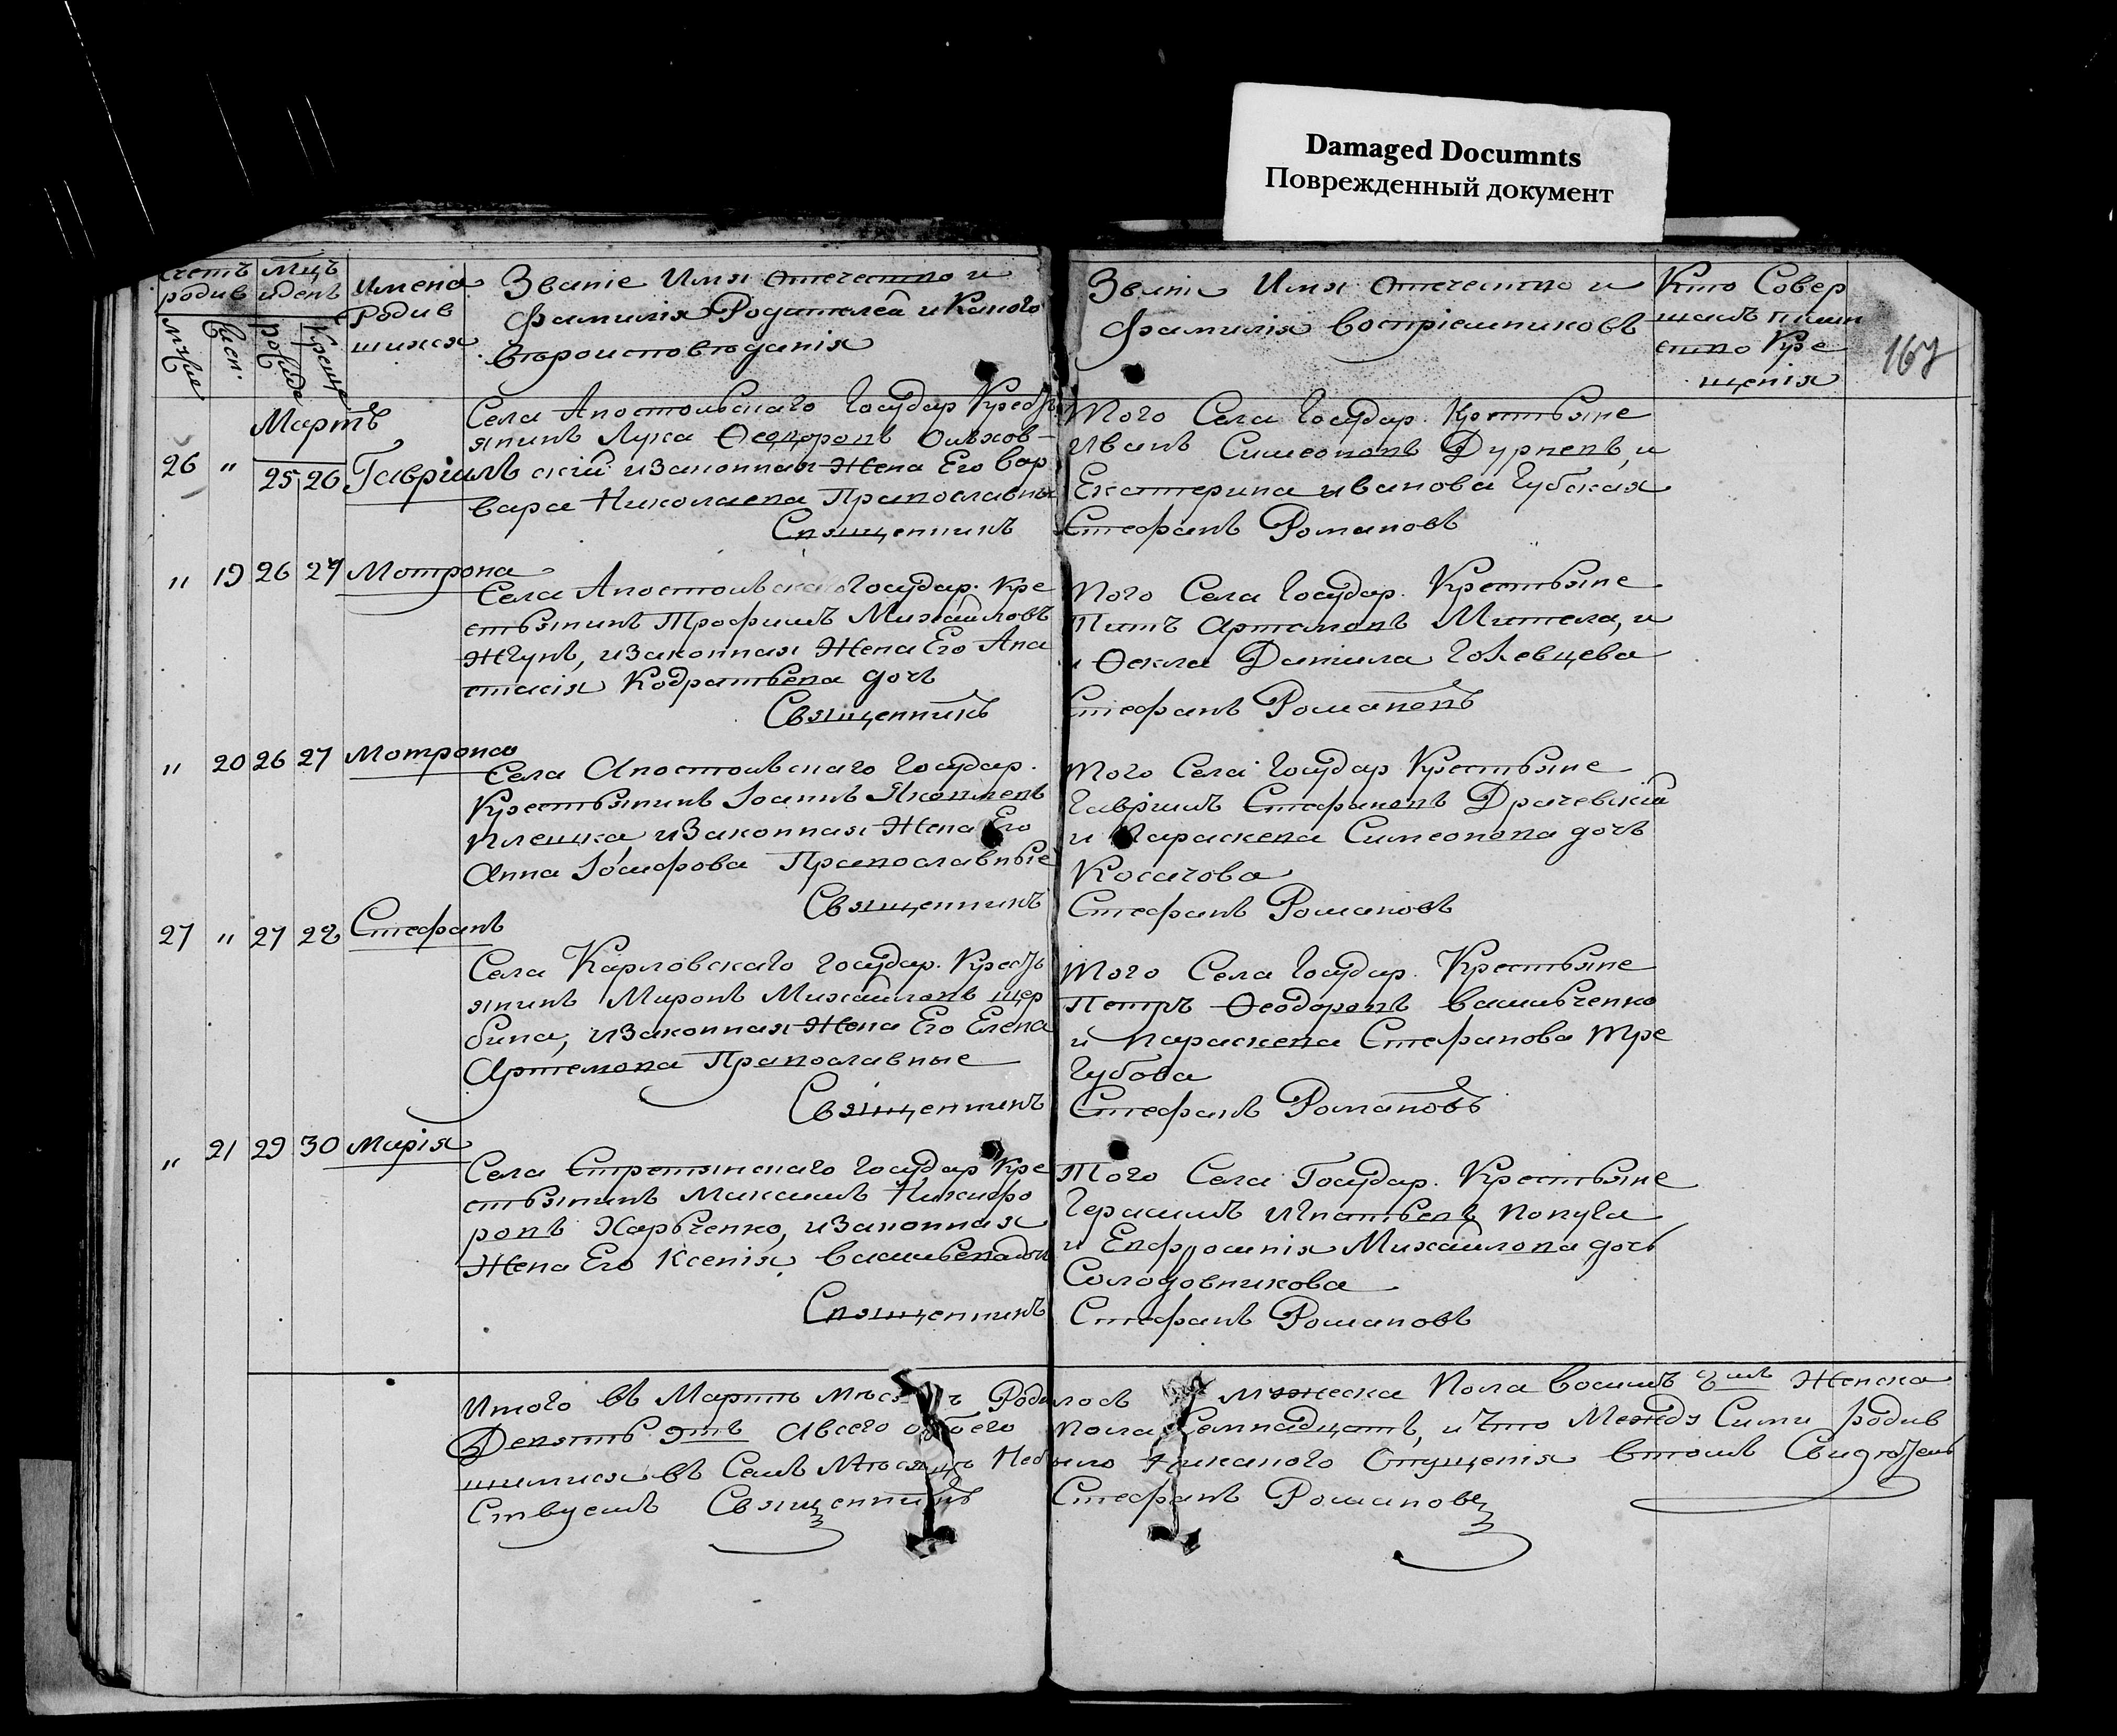 Damaged Documnts
Поврежденный документ
167
Счетъ родив
Мцъ идень
Имена Родив шихся
Званіе Имя Отечество и
фамилія Родителей и Какого
Вѣроисповѣданія
мужс
женс.
рожде
Креще
Званіе Имя Отечество и
фамилія Воспріемниковъ
Кто Совер
шалъ таин
ство Кре
щенія
Мартъ
26 " 25 26 Гавріилъ
Села Апостольскаго Государ Крестъ
янинъ Лука Ѳеодоровъ Ольхов-
скій и Законная Жена Его Вар
вара Николаева Православны
Священникъ
Того Села Государ. Крестьяне
Иванъ Симеоновъ Дурневъ, и
Екатерина иванова Губская
Стефанъ Романовъ
" 19 26 27 Мотрона
Села Апостольскаго Государ. Кре
стьянинъ Трофимъ Михайловъ
Жгунъ, и Законная Жена Его Ана
стасія Кодратьева дочь
Священникъ
Того Села Государ. Крестьяне
Титъ Артемовъ Мител, и
и Ѳекла Данила
Стефанъ Романовъ
" 20 26 27 Мотрона
Села Апостольскаго Государ.
Крестьянинъ Іоаннъ Яковлевъ
Плешка и Законная Жена Его
Анна Іосифова Православные
Священникъ
Того Села Государ Крестьяне
Гавріилъ Стефановъ Драчевскій
и Параскева Симеонова дочь
Косачова
Стефанъ Романовъ
27 " 27 28 Стефанъ
Села Карловскаго Государ. Крестъ
янинъ Миронъ Михайловъ Щер
бина, и Законная Жена Его Елена
Артемова Православные
Священникъ
Того Села Государ. Крестьяне
Петръ Ѳеодоровъ Васильченко
и Параскева Стефанова Тре
губова
Стефанъ Романовъ
" 21 29 30 Марія
Села Стретинскаго Государ Кре
стьянинъ Максимъ Никифо
ровъ Харьченко, и Законная
Жена Его Ксенія Васильева дочь
Священникъ
Того Села Государ. Крестьяне
Герасимъ Игнатьевъ Попуга
и Евфросинія Михайлова дочь
Солодовникова
Стефанъ Романовъ
Итого въ Мартѣ мѣсяцѣ Родилось мужеска Пола Восимъ 8мь Женска
Девять 9ть Авсего обоего пола Семнадцать, и что Между Сими родив
шимися въ Семъ Мѣсяцѣ Небыло никакого Опущенія Втомъ Свидѣтель
Ствуемъ Священникъ Стефанъ Романовъ